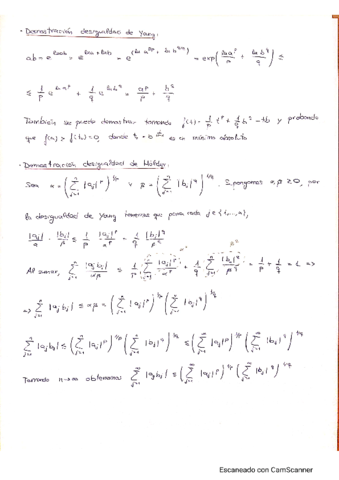 · Demostración desigualdad de Young.
ab = e^{ln ab} = e^{ln a + ln b} = e^{(ln a^p/p + ln b^q/q)} = exp(ln a^p/p + ln b^q/q) ≤
≤ 1/p e^{ln a^p} + 1/q e^{ln b^q} = a^p/p + b^q/q
También se puede demostrar tomando f(t) = 1/p t^p + 1/q b^q - tb y probando
que f(a) ≥ f(t₀) = 0, donde t₀ = b es un mínimo absoluto
· Demostración desigualdad de Hölder.
Sean α = (∑_{j=1}^n |a_j|^p)^{1/p} y β = (∑_{j=1}^n |b_j|^q)^{1/q}. Supongamos α,β ≥ 0, por
la desigualdad de Young tenemos que para cada j ∈ {1,...,n},
|a_j|/α · |b_j|/β ≤ 1/p |a_j|^p/α^p + 1/q |b_j|^q/β^q
Al sumar, ∑_{j=1}^n |a_j b_j|/αβ ≤ 1/p ∑_{j=1}^n |a_j|^p/α^p + 1/q ∑_{j=1}^n |b_j|^q/β^q = 1/p + 1/q = 1 ⇒
⇒ ∑_{j=1}^n |a_j b_j| ≤ αβ = (∑_{j=1}^n |a_j|^p)^{1/p} (∑_{j=1}^n |b_j|^q)^{1/q}
∑_{j=1}^n |a_j b_j| ≤ (∑_{j=1}^n |a_j|^p)^{1/p} (∑_{j=1}^n |b_j|^q)^{1/q} ≤ (∑_{j=1}^∞ |a_j|^p)^{1/p} (∑_{j=1}^∞ |b_j|^q)^{1/q}
Tomando n→∞ obtenemos ∑_{j=1}^∞ |a_j b_j| ≤ (∑_{j=1}^∞ |a_j|^p)^{1/p} (∑_{j=1}^∞ |b_j|^q)^{1/q}
Escaneado con CamScanner